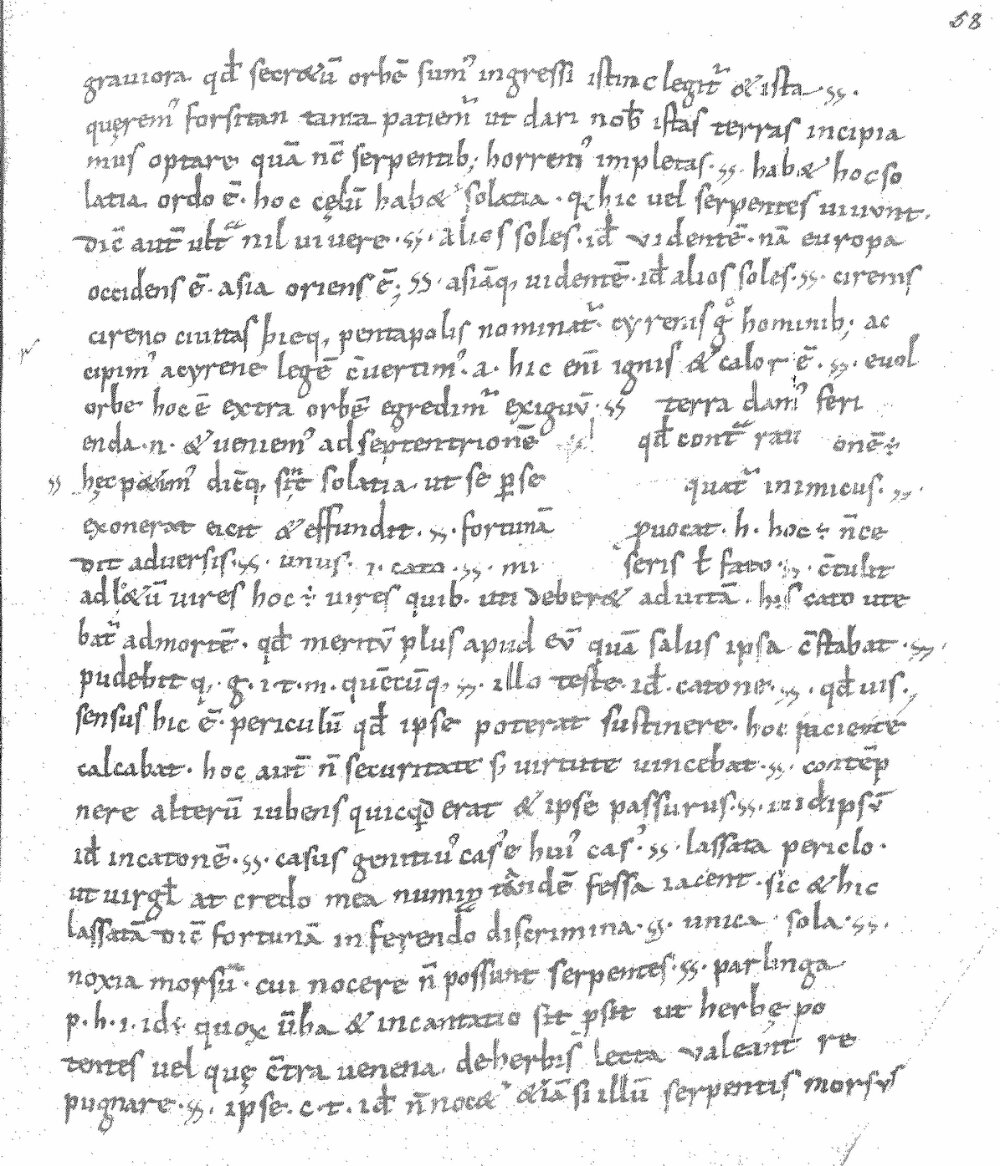 58
grauiora qđ secr&ū orbē sum᾽ ingressi istinc legit᷑ & ista ⹎.
quęrem᾽ forsitan tanta patiem᷑ ut dari nob̄ istas terras incipia
mus optare quā nc̄ serpentib; horrem᾽ impletas. hab& hoc so
latia ordo ē. hoc cęlū hab& solatia. q hic uel serpentes uiuunt.
Dic̄ aut̄ ult᷑ nil uiuere. alios soles. id̄ videntē. nā europa
occidens ē. asia oriens ē; asiāq, uidentē. id̄ alios soles. cirenis
cireno ciuitas hicq, pentapolis nominat᷑ cyrenis g° hominib; ac
cipim᾽ acyrene legē c̄uertim᾽. a. hic eni ignis & calor ē. euol
orbe hoc ē extra orbē egredim᷑ exiguū terra dam᾽ feri
enda. n. & ueniem᾽ ad septentrionē qđ cont᷑ rau onē÷
hęc p&im᾽ dic̄q, sit̄ solatia ut se ꝑse quat᷑ inimicus.
exonerat eicit & effundit. fortunā puocat. h. hoc ÷ n̄ce
Dit aduersis. unus. i. cato. mi seris ł fato. c̄tulit
ad l&ū uires hoc ÷ uires quib. uti deber& ad uitā. his cato ute
bat᷑ ad mortē. qđ meritū plus apud eū quā salus ipsa c̄stabat.
pudebit q, . g. i. t. m. quēcūq, illo teste. id̄. catone. qđ uis.
sensus hic ē. periculū qđ ipse poterat sustinere. hoc faciente
calcabat. hoc aut̄ n̄ securitate s; uirtute uincebat. contēp
nere alterū iubens quicqđ erat & ipse passurus. id ipsū
id̄ incatonē. casus genitiu᾽ cas᾽ ē hui᾽ cas᾽. lassata periclo.
ut uirgł at credo mea numin tandē fessa iacent. sic & hic
lassatā dic̄ fortunā inferendo discrimina. g. unica sola.
noxia morsū. cui nocere n̄ possunt serpentes. par linga
p. h. i. id; quox ūba & incantatio sit ꝑsit ut herbę po
tentes uel quę c̄tra uenena de herbis lecta valeant re
pugnare. ipse. c. t. id̄ n̄ noc& &iā si illū serpentis morsus